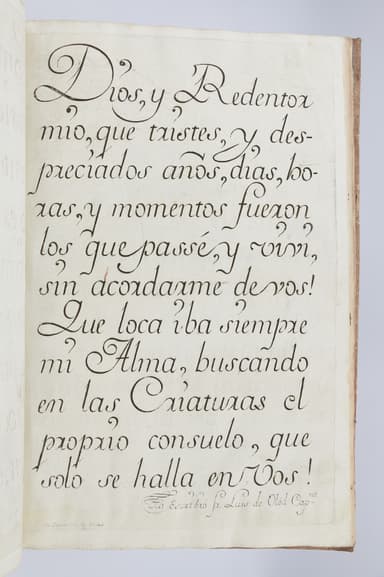 Dios, y Redentor
mio, que tristes, y des-
preciados años, dias, ho-
ras, y momentos fueron
los que passé, y vivi,
sin acordarme de vos!
Que loca iba siempre
mi Alma, buscando
en las Criaturas el
proprio consuelo, que
solo se halla en Vos!
Lo Escribio fr. Luis de Olod Cap.no